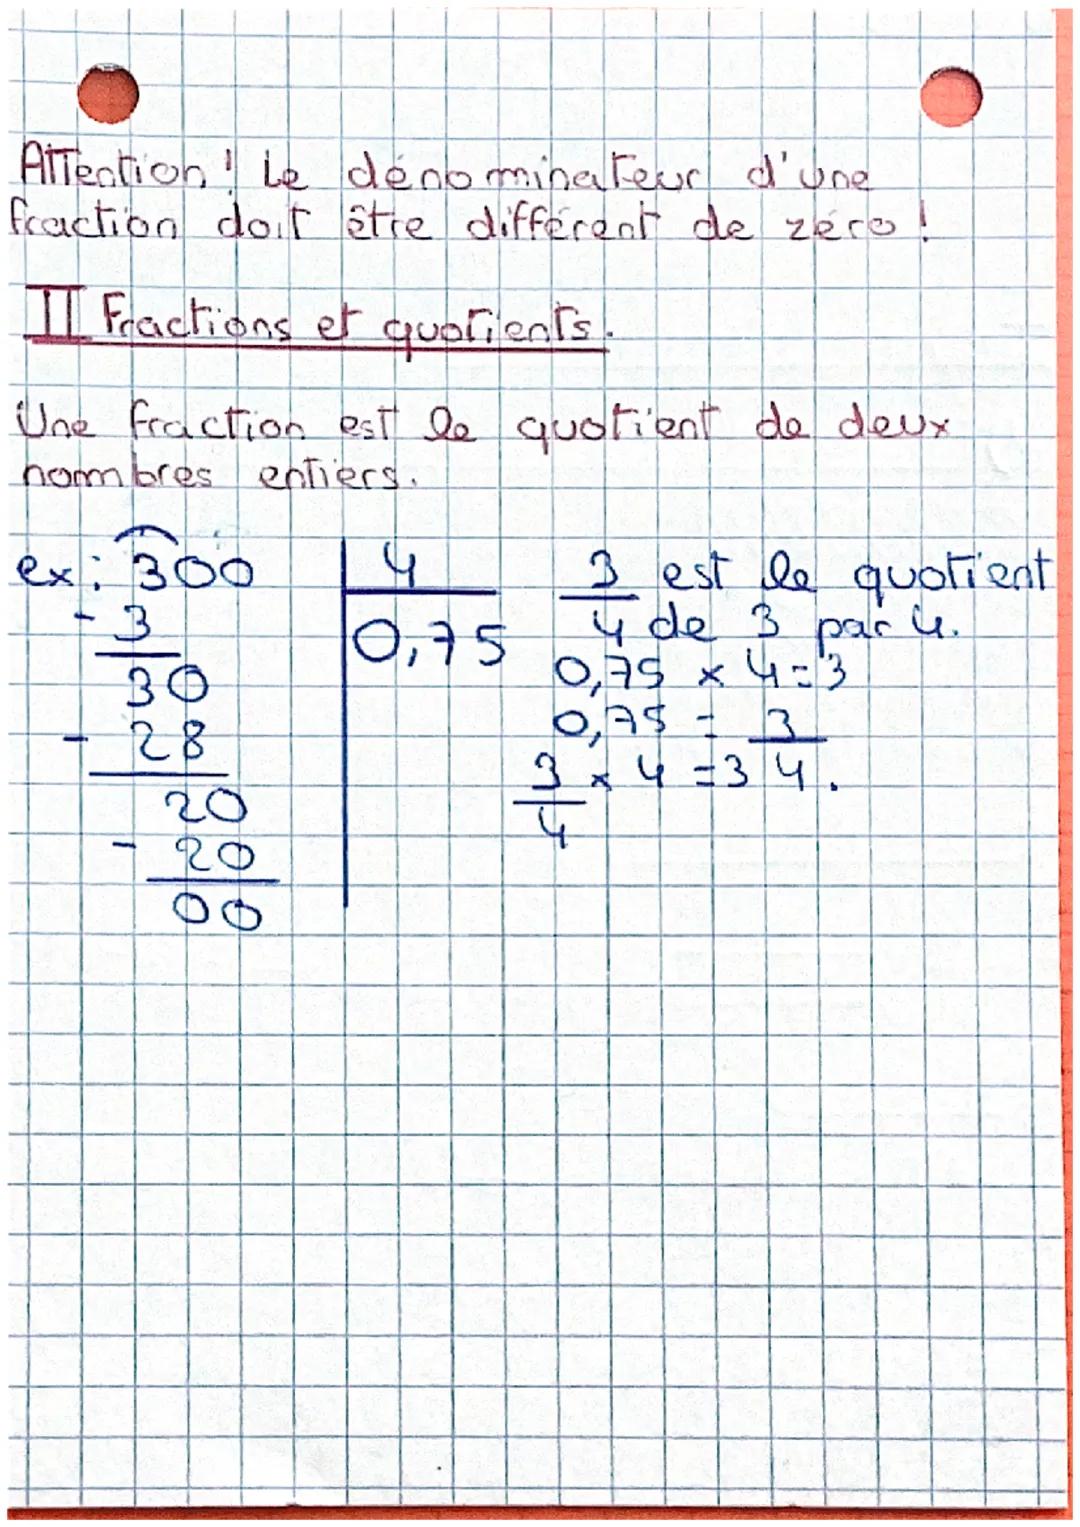 Attention! Le dénominateur d'une
fraction doit être différent de zéro!
II Fractions et quotients.
Une fraction est le quotient de deux
nombres entiers.
ex: 300 | 4
- 3 | 0,75
30
- 28
20
- 20
00
3/4 est le quotient
de 3 par 4.
0,75 x 4=3
0,75 = 3/4.
3/4 x 4 =3